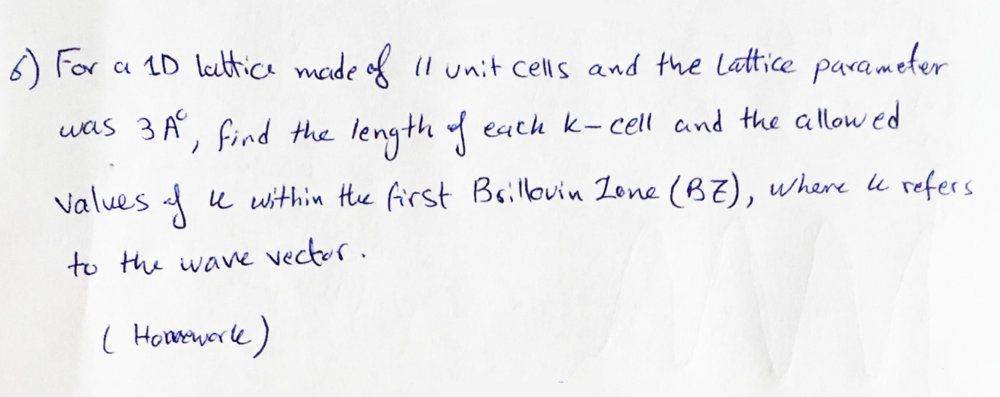 6) For a 1D lattice made of 11 unit cells and the lattice parameter
was 3 A°, find the length of each k-cell and the allowed
values of k within the first Brillouin Zone (BZ), where k refers
to the wave vector.
( Homework )